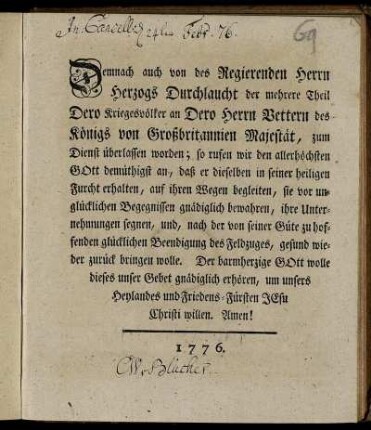 In Cancell. 24ten Febr. 76.
69
Demnach auch von des Regierenden Herrn
Herzogs Durchlaucht der mehrere Theil
Dero Kriegesvölker an Dero Herrn Vettern des
Königs von Großbritannien Majestät, zum
Dienst überlassen worden; so rufen wir den allerhöchsten
GOtt demüthigst an, daß er dieselben in seiner heiligen
Furcht erhalten, auf ihren Wegen begleiten, sie vor un-
glücklichen Begegnissen gnädiglich bewahren, ihre Unter-
nehmungen segnen, und, nach der von seiner Güte zu hof-
fenden glücklichen Beendigung des Feldzuges, gesund wie-
der zurück bringen wolle. Der barmherzige GOtt wolle
dieses unser Gebet gnädiglich erhören, um unsers
Heylandes und Friedens-Fürsten JEsu
Christi willen. Amen!
1776.
Blücher.